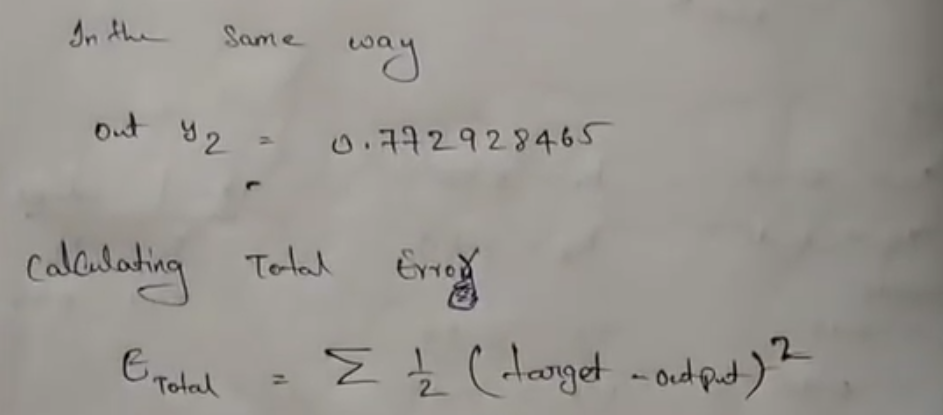 In the Same way
out y2 = 0.772928465
Calculating Total Error
E Total = Σ 1/2 (target - output)²